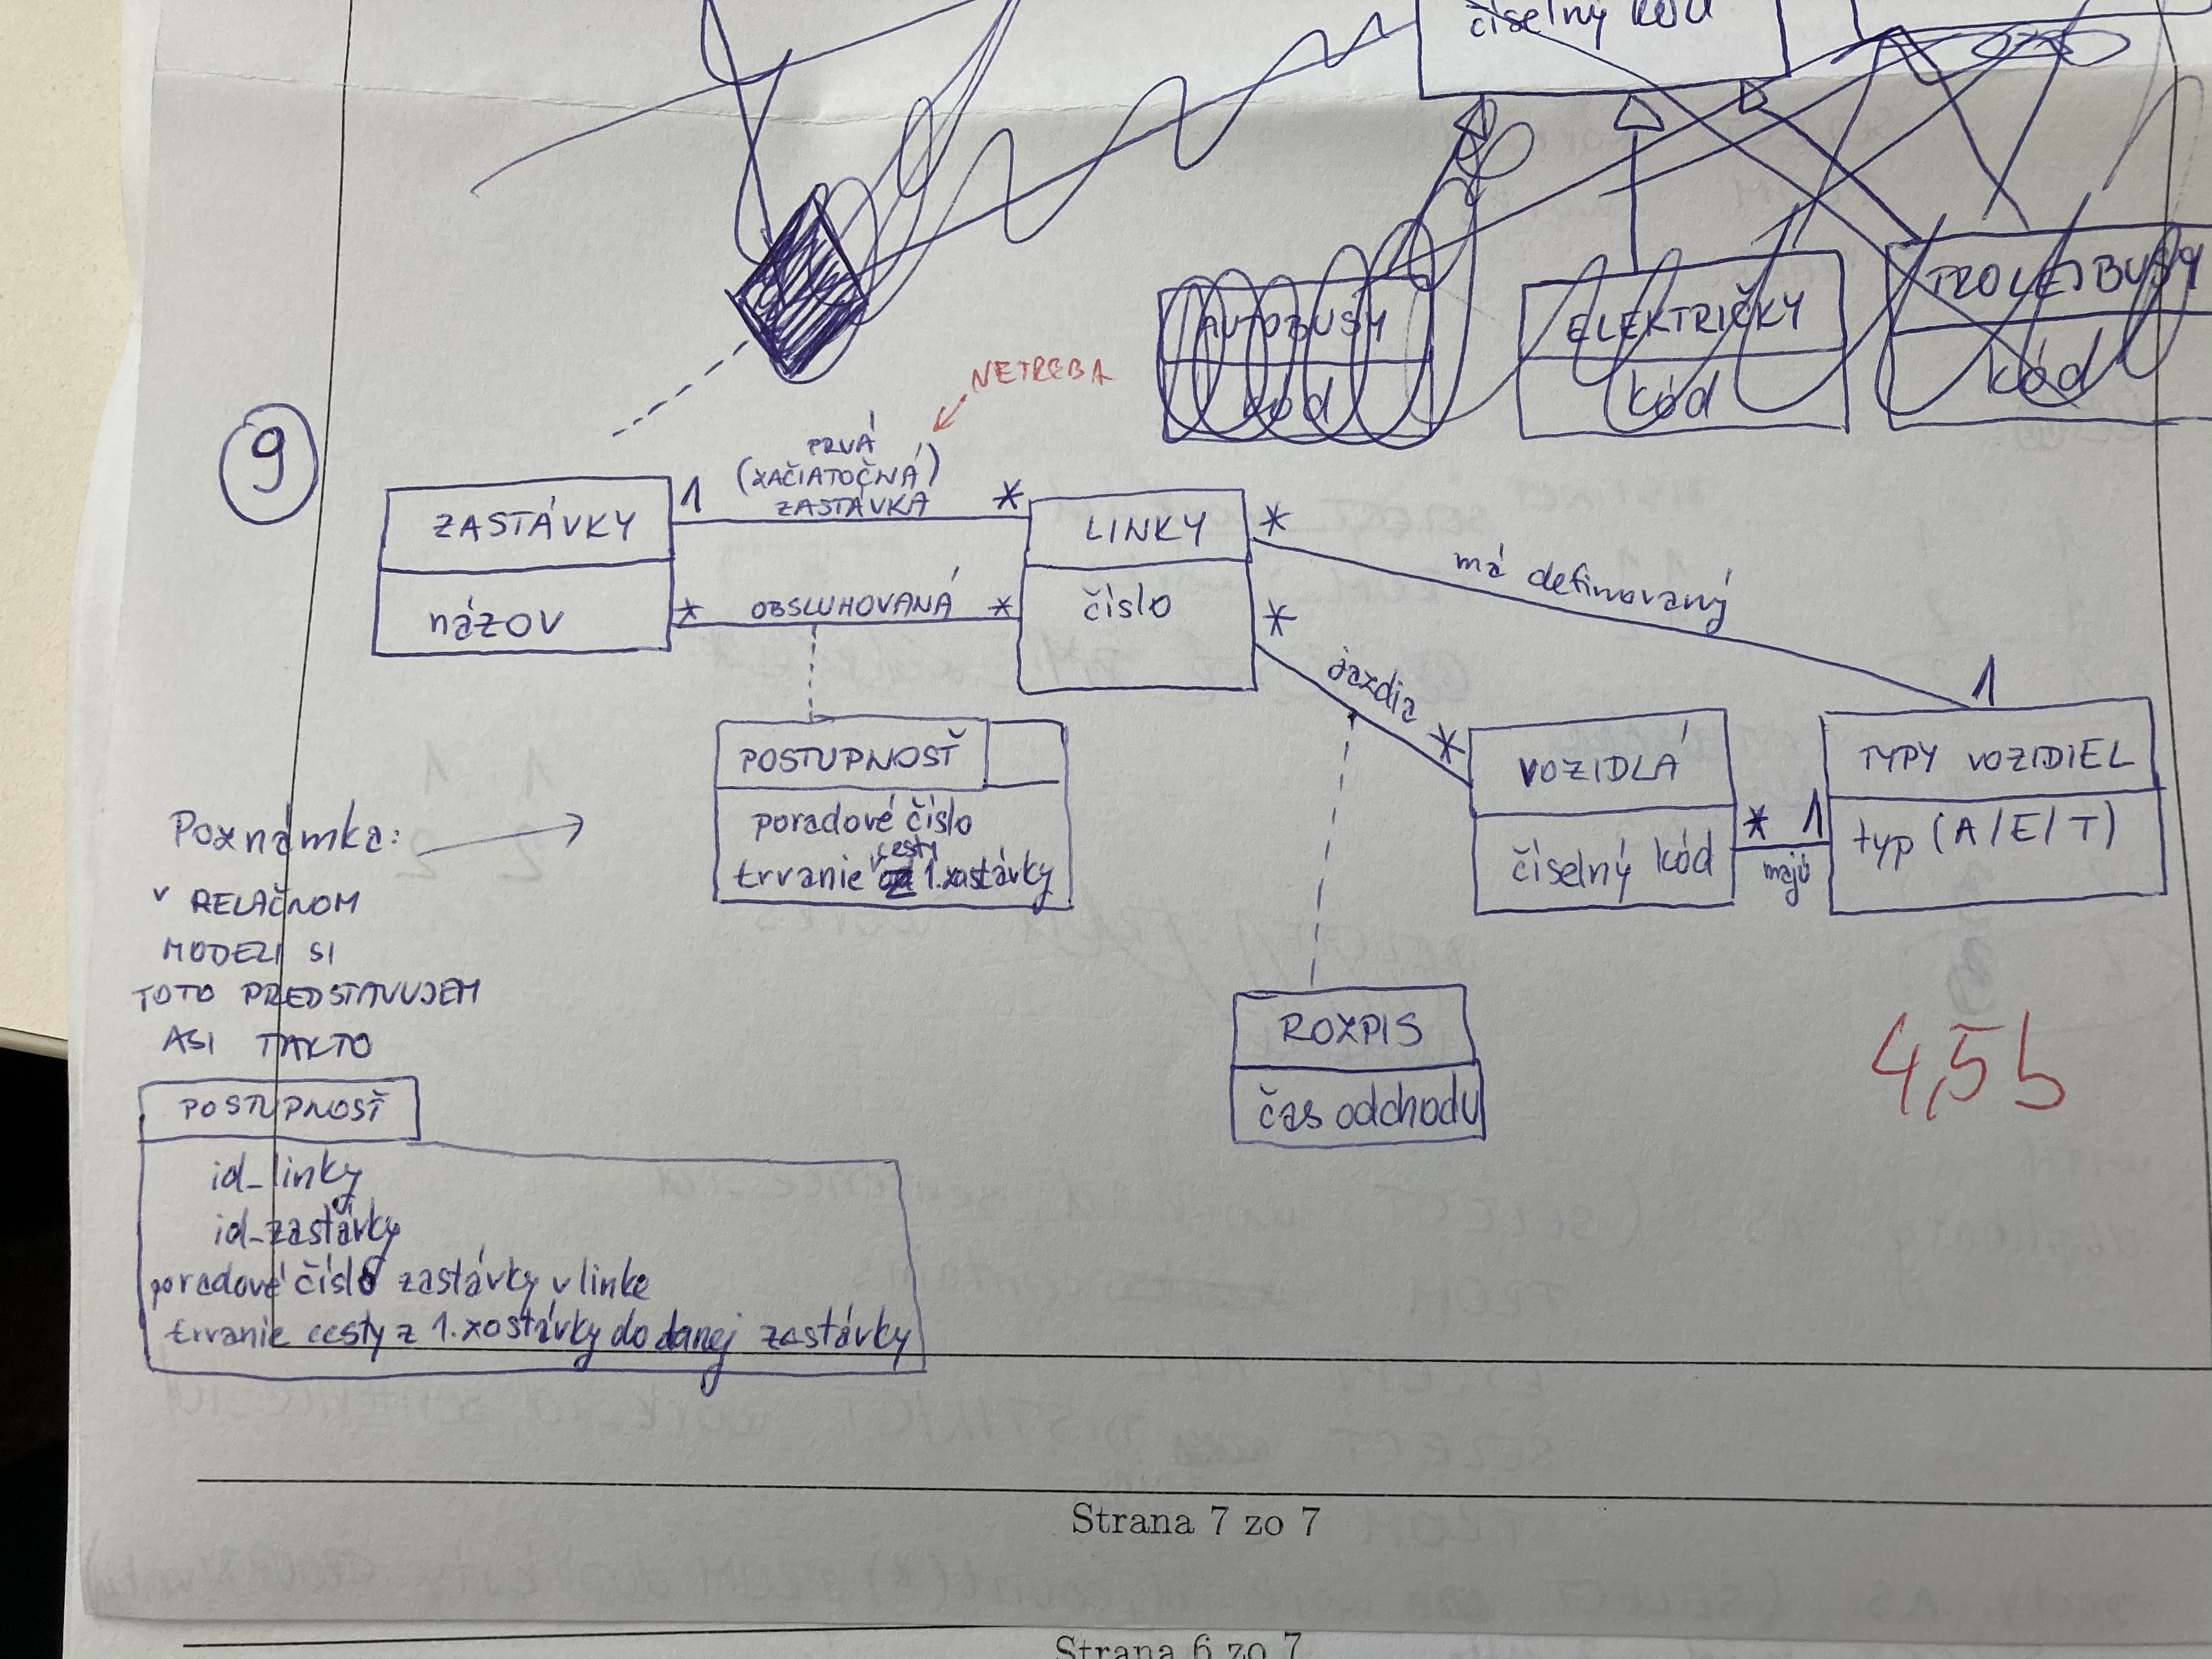 9
číselný kód
AUTOBUSY
kód
ELEKTRIČKY
kód
TROLEJBUSY
kód
NETREBA
PRVÁ
(ZAČIATOČNÁ)
ZASTÁVKA
ZASTÁVKY
názov
1
*
*
OBSLUHOVANÁ
*
LINKY
číslo
*
*
má definovaný
1
jazdia
*
POSTUPNOSŤ
poradové číslo
trvanie cesty
1. zastávky
ROZPIS
čas odchodu
VOZIDLÁ
číselný kód
*
majú
1
TYPY VOZIDIEL
typ (A/E/T)
Poznámka:
V RELAČNOM
MODELI SI
TOTO PREDSTAVUJEM
ASI TAKTO
POSTUPNOSŤ
id_linky
id_zastávky
poradové číslo zastávky v linke
trvanie cesty z 1. zostávky do danej zastávky
4,5b
Strana 7 zo 7
Strana 6 zo 7